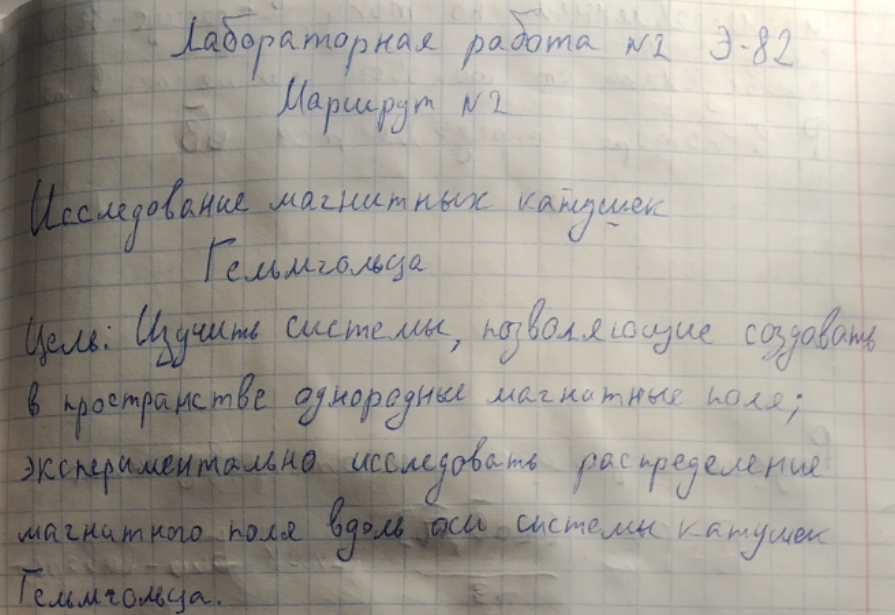 Лабораторная работа №2 Э-82
Маршрут №2
Исследование магнитных катушек
Гельмгольца
Цель: Изучить системы, позволяющие создавать
в пространстве однородные магнитные поля;
экспериментально исследовать распределение
магнитного поля вдоль оси системы катушек
Гельмгольца.